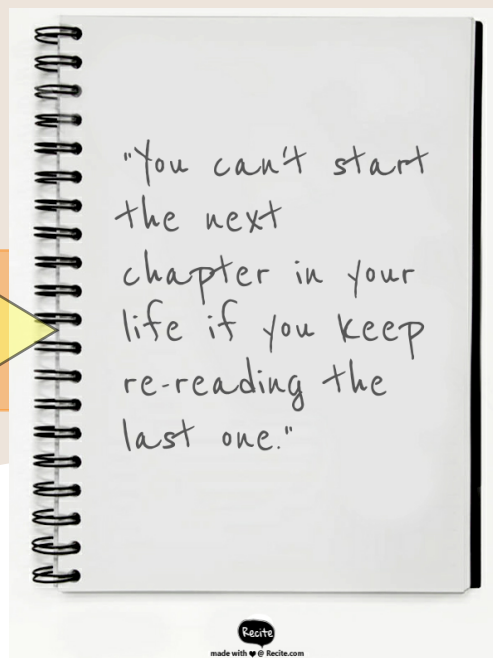 "You can't start
the next
chapter in your
life if you keep
re-reading the
last one."
Recite
made with ♥ @ Recite.com